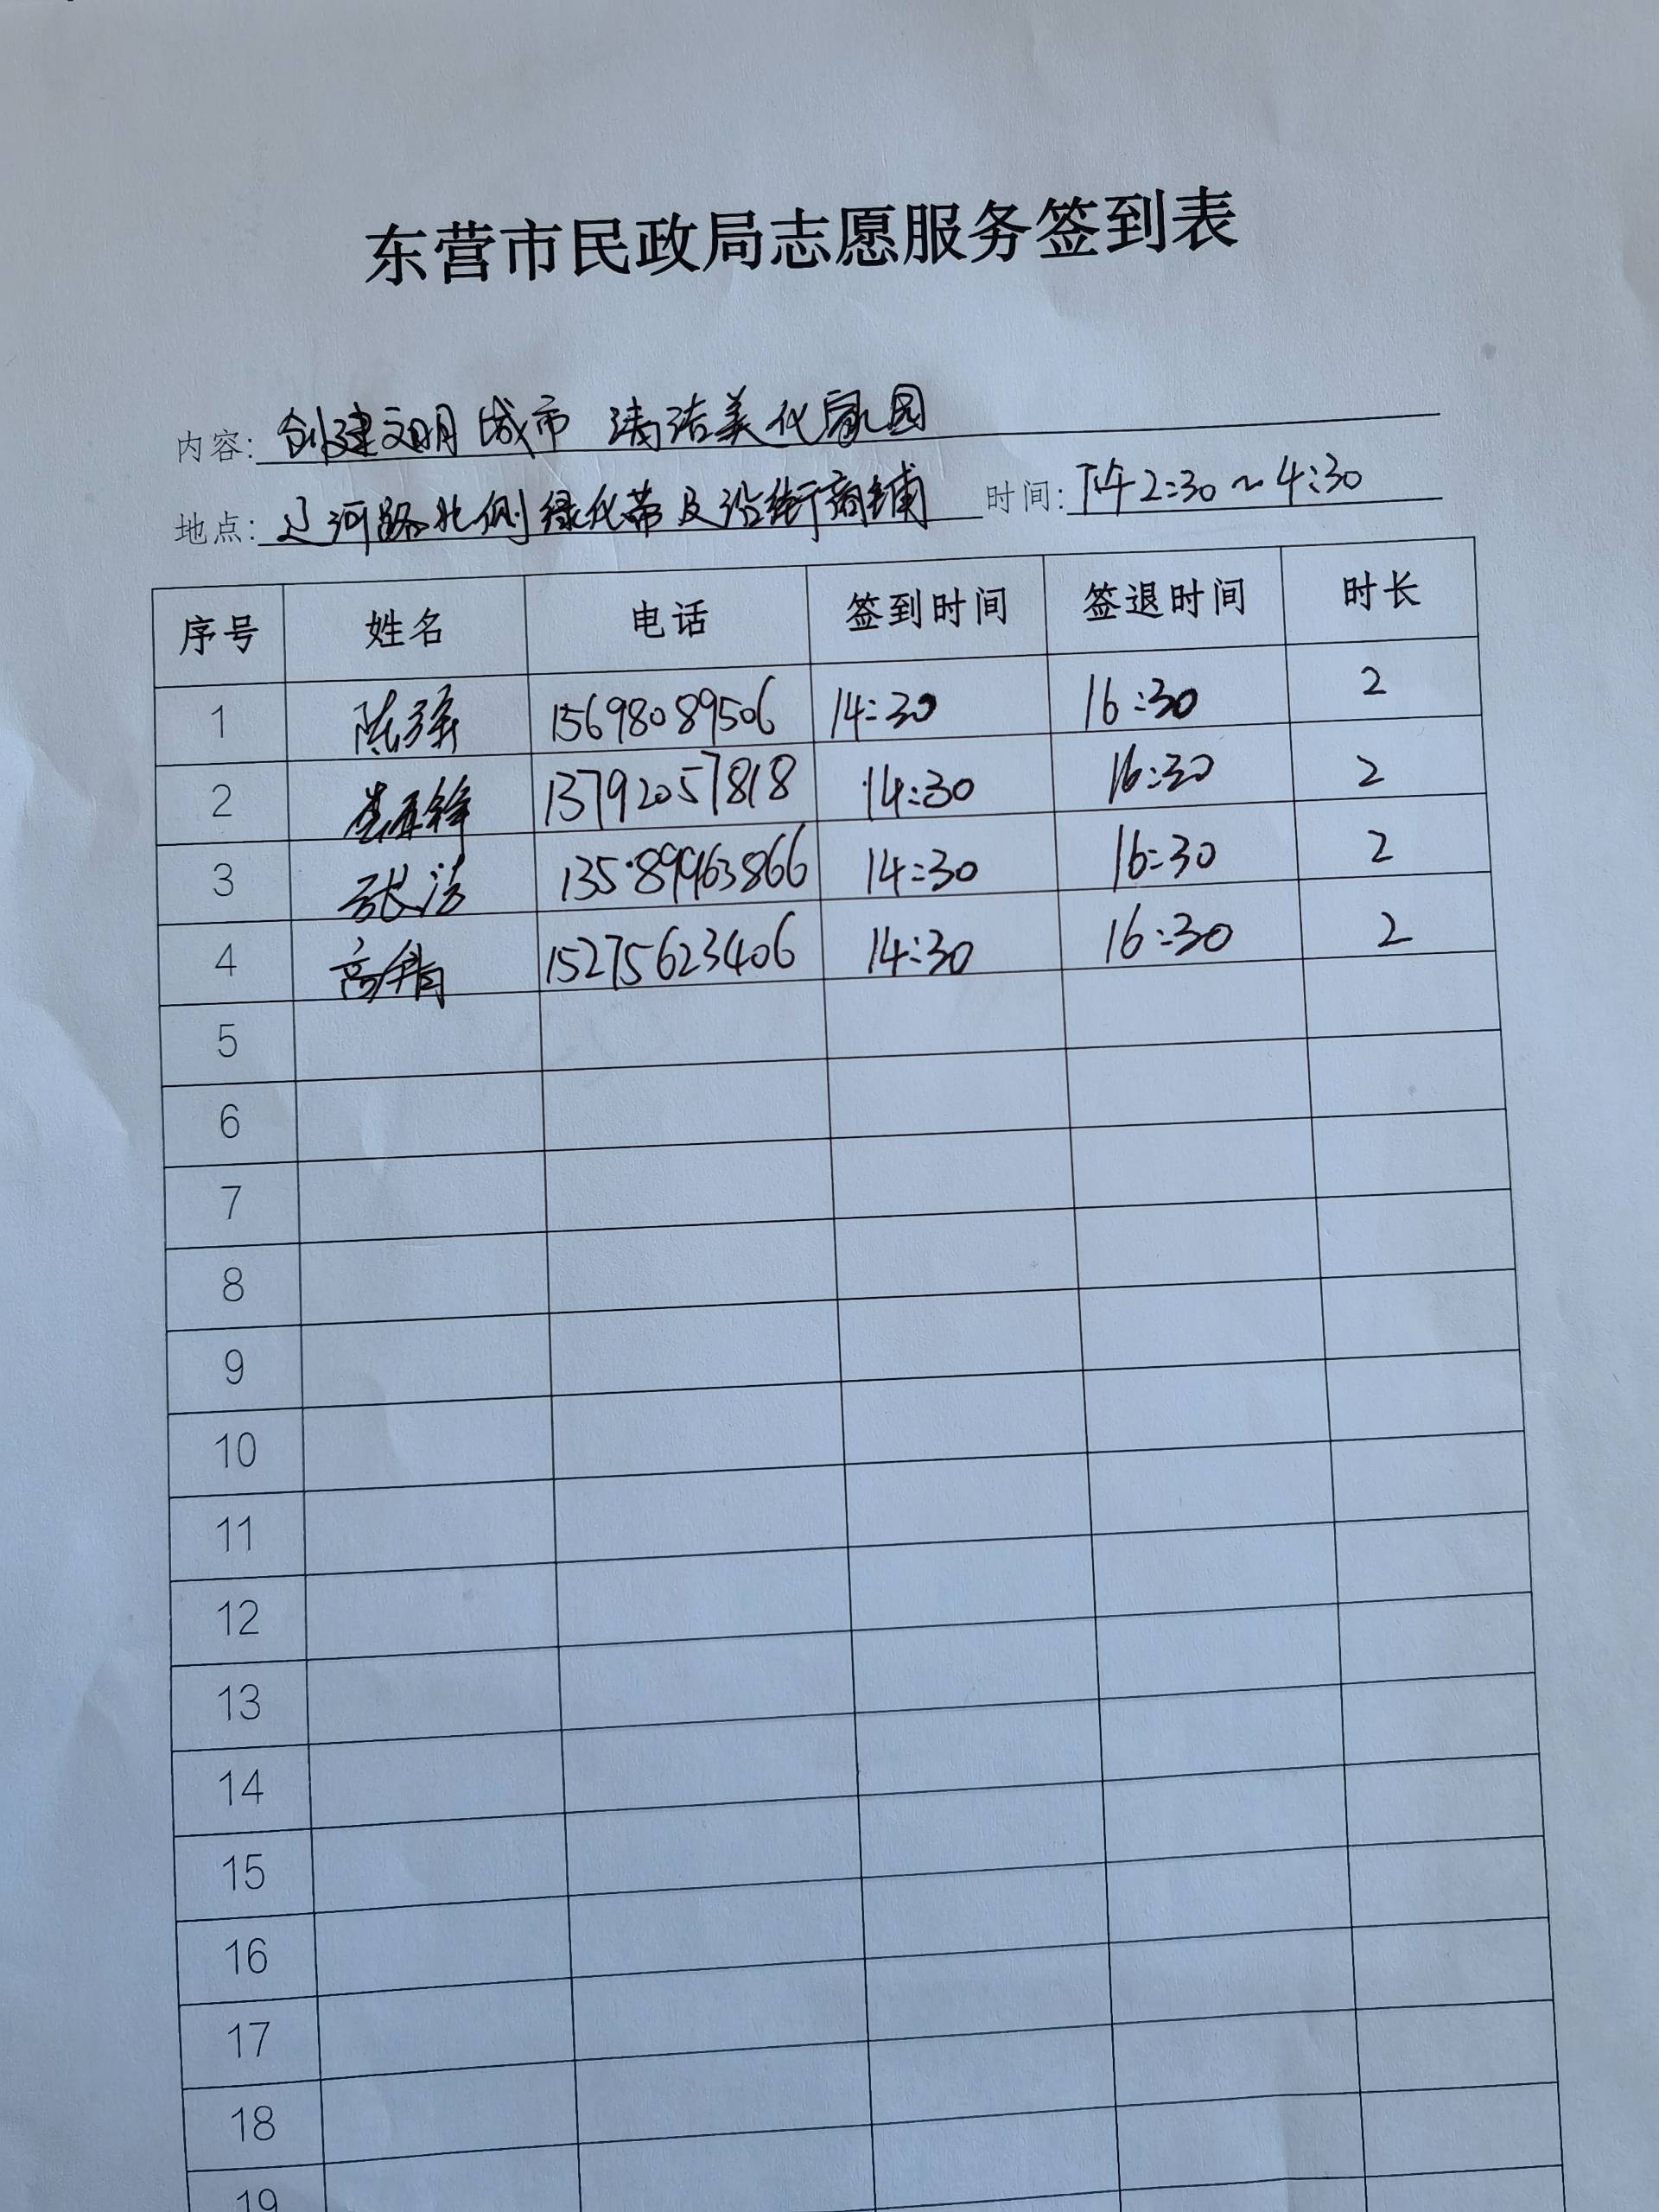 东营市民政局志愿服务签到表
内容: 创建文明城市 清洁美化家园
地点: 辽河路北侧绿化带及沿街商铺 时间: 下午2:30~4:30
序号 姓名 电话 签到时间 签退时间 时长
1 陈强 15698089506 14:30 16:30 2
2 13792057818 14:30 16:30 2
3 张洁 13589963866 14:30 16:30 2
4 高倩 15275623406 14:30 16:30 2
5
6
7
8
9
10
11
12
13
14
15
16
17
18
19